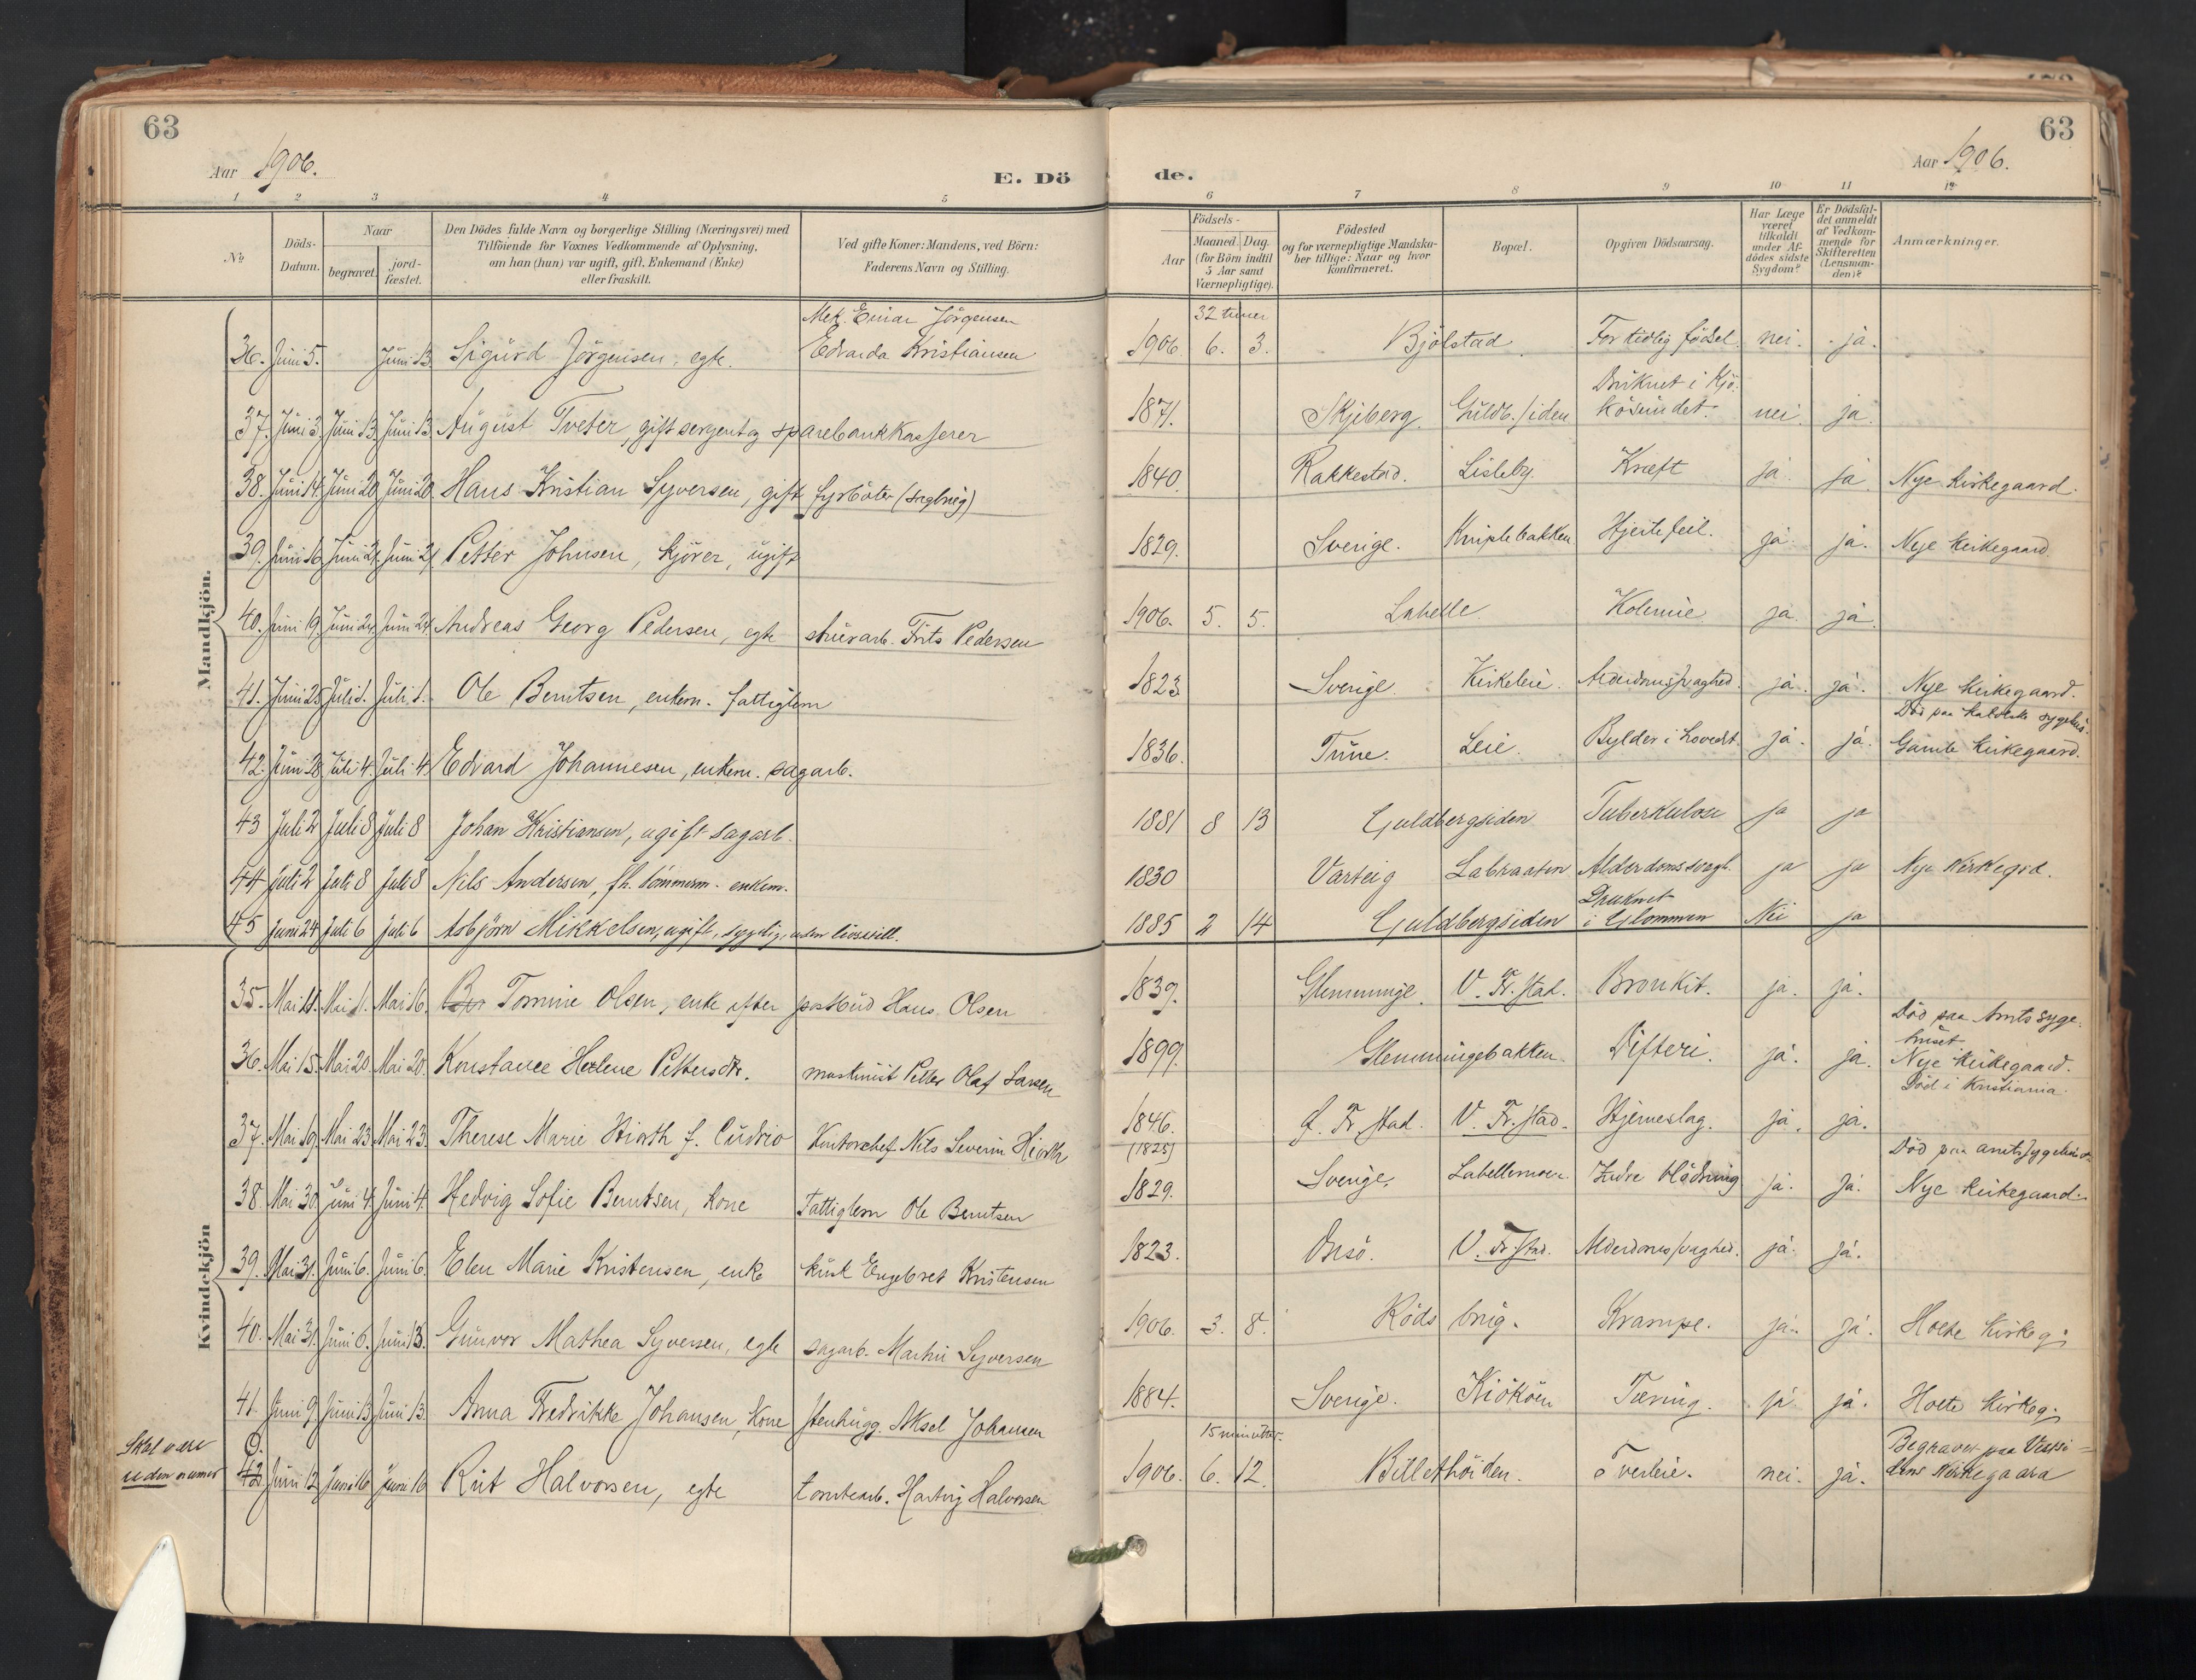 63
63
Aar 1906.
E. Dö
de.
Aar 1906.
1 2 3 4 5 6 7 8 9 10 11 12
No
Döds-Datum.
Naar
begravet.
jord-fæstet.
Den Dödes fulde Navn og borgerlige Stilling (Næringsvei) med
Tilföiende for Voxnes Vedkommende af Oplysning,
om han (hun) var ugift, gift, Enkemand (Enke)
eller fraskilt.
Ved gifte Koner: Mandens, ved Börn:
Faderens Navn og Stilling.
Födsels-
Aar
Maaned. Dag.
(for Börn indtil
5 Aar samt
Værnepligtige).
Födested
og for værnepligtige Mandska-
ber tillige: Naar og hvor
konfirmeret.
Bopæl.
Opgiven Dödsaarsag.
Har Læge
været
tilkaldt
under Af-
dödes sidste
Sygdom?
Er Dödsfal-
det anmeldt
af Vedkom-
mende for
Skifteretten
(Lensman-
den)?
Anmærkninger.
Mandkjön.
Mek. Einar Jörgensen 32 timer
36. Juni 5. Juni 13 Sigurd Jörgensen, egte. Edvarda Kristiansen 1906 6. 3. Bjölstad For tidlig födsel. nei. ja.
Druknet i Kjö-
37. Juni 3 Juni 13 Juni 13 August Tveter, gift sergent og sparebankkasserer 1871. Skjeberg. Guldb.siden kösundet. nei. ja.
38. Juni 14. Juni 20 Juni 20 Hans Kristian Syversen, gift fyrböter (sagbrug) 1840. Rakkestad. Lisleby. Kræft ja. ja. Nye Kirkegaard.
39. Juni 16 Juni 21. Juni 21 Petter Johnsen, kjörer, ugift 1829. Sverige. Kniplebakken Hjertefeil. ja. ja. Nye Kirkegaard
40. Juni 19. Juni 24 Juni 24 Andreas Georg Pedersen, egte stuerarb. Frits Pedersen 1906. 5. 5. Labelle Kolerine ja. ja.
41. Juni 25 Juli 1. Juli 1. Ole Berntsen, enkem. fattiglem 1823 Sverige. Kirkeleie. Alderdomssvaghed. ja. ja. Nye Kirkegaard.
Död paa katolske sygehus.
42. Juni 28 Juli 4. Juli 4. Edvard Johannesen, enkem. sagarb. 1836. Tune. Leie. Bylder i hovedet. ja. ja. Gamle Kirkegaard.
43 Juli 2 Juli 8 Juli 8 Johan Kristiansen, ugift sagarb. 1881 8 13 Guldbergsiden Tuberkulose ja ja
44 Juli 2 Juli 8 Juli 8 Nils Andersen, fh. tömmerm. enkem. 1830 Varteig Labraaten Alderdomssvagh. ja ja Nye Kirkegrd.
Druknet
45 Juni 24 Juli 6 Juli 6 Asbjörn Mikkelsen, ugift, sygelig, uden livsstill. 1885 2 14 Guldbergsiden i Glommen Nei ja
Kvindekjön
35. Mai 11. Mai 1. Mai 16. Tomine Olsen, enke efter postbud Hans Olsen 1839. Glemminge. V. Fr.stad. Bronkit. ja. ja.
Död paa Amtssyge-
huset
36. Mai 15. Mai 20 Mai 20. Konstance Helene Pettersdtr. maskinist Petter Olaf Larsen 1899. Glemmingebakken. Difteri. ja. ja. Nye Kirkegaard.
Död i Kristiania.
37. Mai 19. Mai 23 Mai 23. Therese Marie Hiorth f. Cudrio Kontorchef Nils Severin Hiorth 1846. G. Fr.stad. V. Fr.stad. Hjerneslag. ja. ja.
(1825) Död paa amtssygehuset
38. Mai 30. Juni 4. Juni 4. Hedvig Sofie Berntsen, kone Fattiglem Ole Berntsen 1829. Sverige. Labellemoen. Indre blödning ja. ja. Nye Kirkegaard.
39. Mai 31. Juni 6. Juni 6. Elen Marie Kristensen, enke kusk Engebret Kristensen 1823. Onsö. V. Fr.stad. Alderdomssvaghed. ja. ja.
40. Mai 31. Juni 6. Juni 13. Gunvor Mathea Syversen, egte sagarb. Martin Syversen 1906. 3. 8. Röds brug. Krampe. ja. ja. Holte Kirkeg.
41. Juni 9. Juni 13 Juni 13. Anna Fredrikke Johansen, kone stenhugg. Aksel Johansen 1884. Sverige. Kiököen Tæring. ja. ja. Holte Kirkeg.
Skal være
uden numer
0. 15 minutter. Begravet paa Vestsi-
42 Juni 12 Juni 16 Juni 16 Rut Halvorsen, egte tomtearb. Hartvig Halvorsen 1906. 6. 12. Billethöiden. Tverleie. nei. ja. dens Kirkegaard